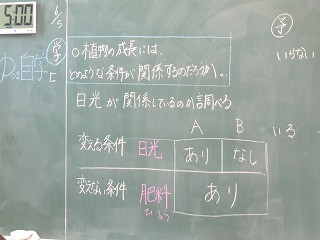 5:00
6/5
㋕学
ゆ自学
○植物の成長には、
どのような条件が関係するのだろうか。
日光が関係しているのか調べる
A B
変える条件 日光 あり なし
変えない条件 肥料 あり
ひりょう
㋵
いらない
いる